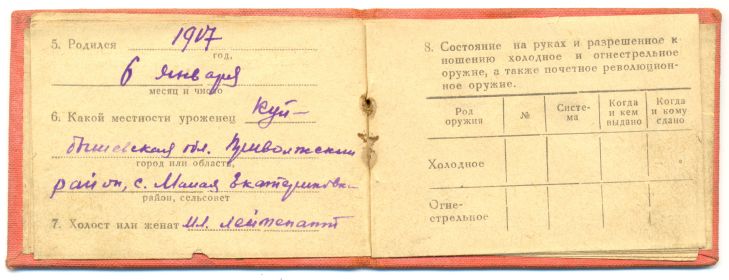 5. Родился 1917
год.
6 января
месяц и число
6. Какой местности уроженец Куй-
бышевская обл. Приволжский
город или область,
район, с. Малая Екатериновка
район, сельсовет
7. Холост или женат мл. лейтенант
8. Состояние на руках и разрешенное к
ношению холодное и огнестрельное
оружие, а также почетное революцион-
ное оружие.
Род оружия № Систе-ма Когда и кем выдано Когда и кому сдано
Холодное
Огне-
стрельное